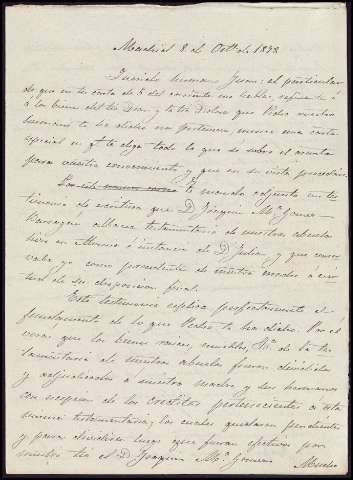 Madrid 8 de Oct.e de 1848
Querido hermano Juan: el particular
de que en tu carta de 5 del corriente me hablas, referente á
á los bienes del tio Dn. y la tia Dolores que Pedro nuestro
hermano te ha dicho nos pertenecen, merece una carta
especial en q.e te diga todo lo que sé sobre el asunto
para nuestro conocimiento, y que en su vista procedais.
Con esta te mando adjunto un tes
timonio de escritura que D. Joaquin M.a Gomez
albacea testamentario de nuestros abuelos
hizo en Murcia á instancia de D. Julian, y que conser
vaba yo como procedente de nuestra madre á vir
tud de su disposicion final.
Este testimonio esplica perfectamente el
fundamento de lo que Pedro te ha dicho. Por él
verás, que los bienes raices, muebles, &.a de la tes
tamentaria de nuestra abuela fueron divididos
y adjudicados á nuestra madre y sus hermanos
con escepcion de los creditos pertenecientes á esta
misma testamentaria; los cuales quedaron pendientes
y para dividirlos luego que fueran efectivos por
nuestro tio el D. Joaquin M.a Gomez.
Mucho